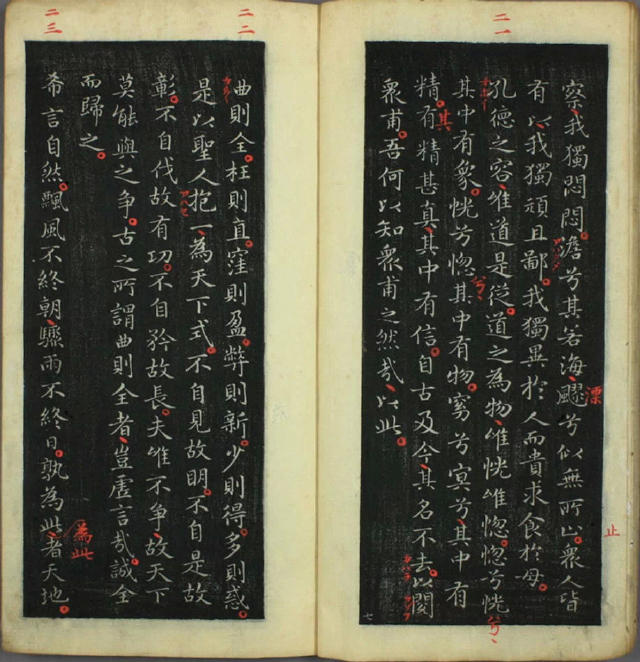 二一
察我獨悶悶。澹兮其若海、飂兮似無所止。衆人皆
漂
止
有以、我獨頑且鄙。我獨異於人而貴求食於母。
孔德之容、唯道是從。道之為物、唯恍唯惚。惚兮恍
兮、
其中有象。恍兮惚其中有物。窈兮冥兮、其中有
兮、
精。有精甚真、其中有信。自古及今、其名不去。以閱
其
衆甫。吾何以知衆甫之然哉、以此。
七
二二
曲則全。枉則直。窪則盈。弊則新。少則得。多則惑。
是以聖人抱一、為天下式。不自見故明。不自是故
彰。不自伐故有功。不自矜故長。夫唯不争、故天下
莫能與之争。古之所謂曲則全者、豈虛言哉。誠全
而歸之。
二三
希言自然。飄風不終朝、驟雨不終日。孰為此者、天地。
為此